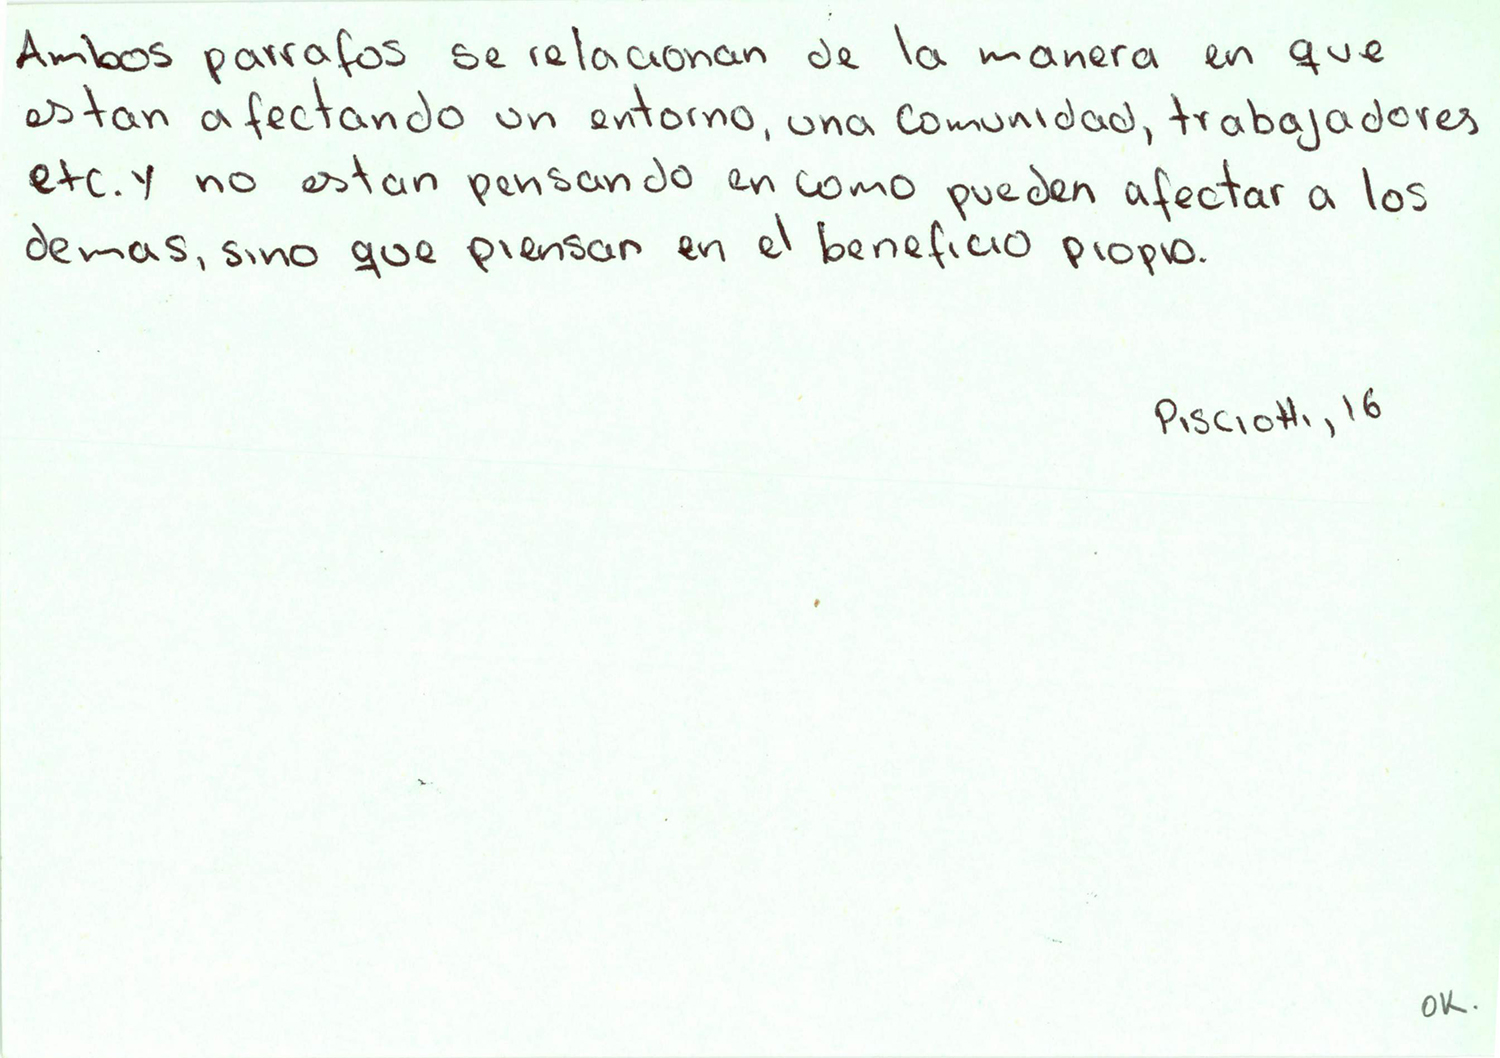 Ambos parrafos se relacionan de la manera en que
estan afectando un entorno, una comunidad, trabajadores
etc. y no estan pensando en como pueden afectar a los
demas, sino que piensan en el beneficio propio.
Pisciotti, 16
OK.